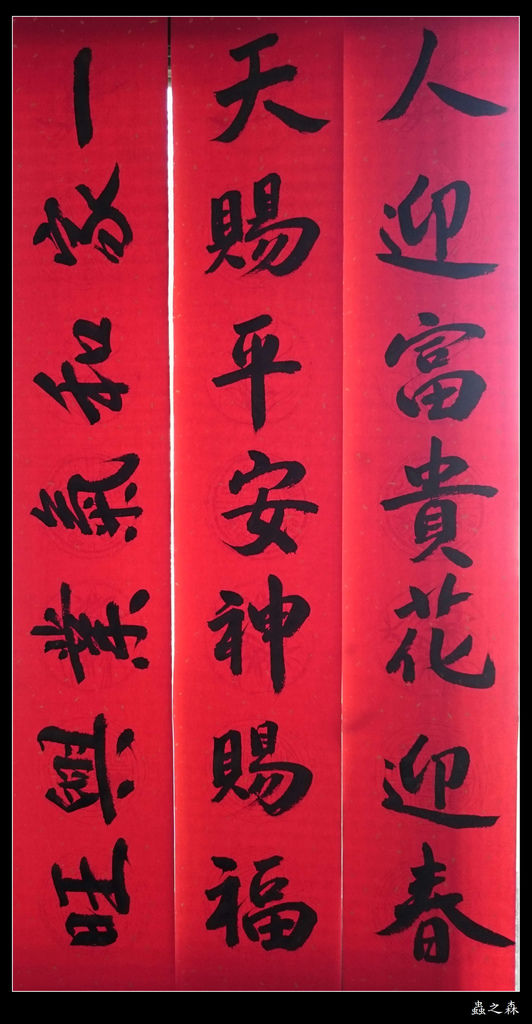 人迎富貴花迎春
天賜平安神賜福
一家和氣業興旺
蟲之森